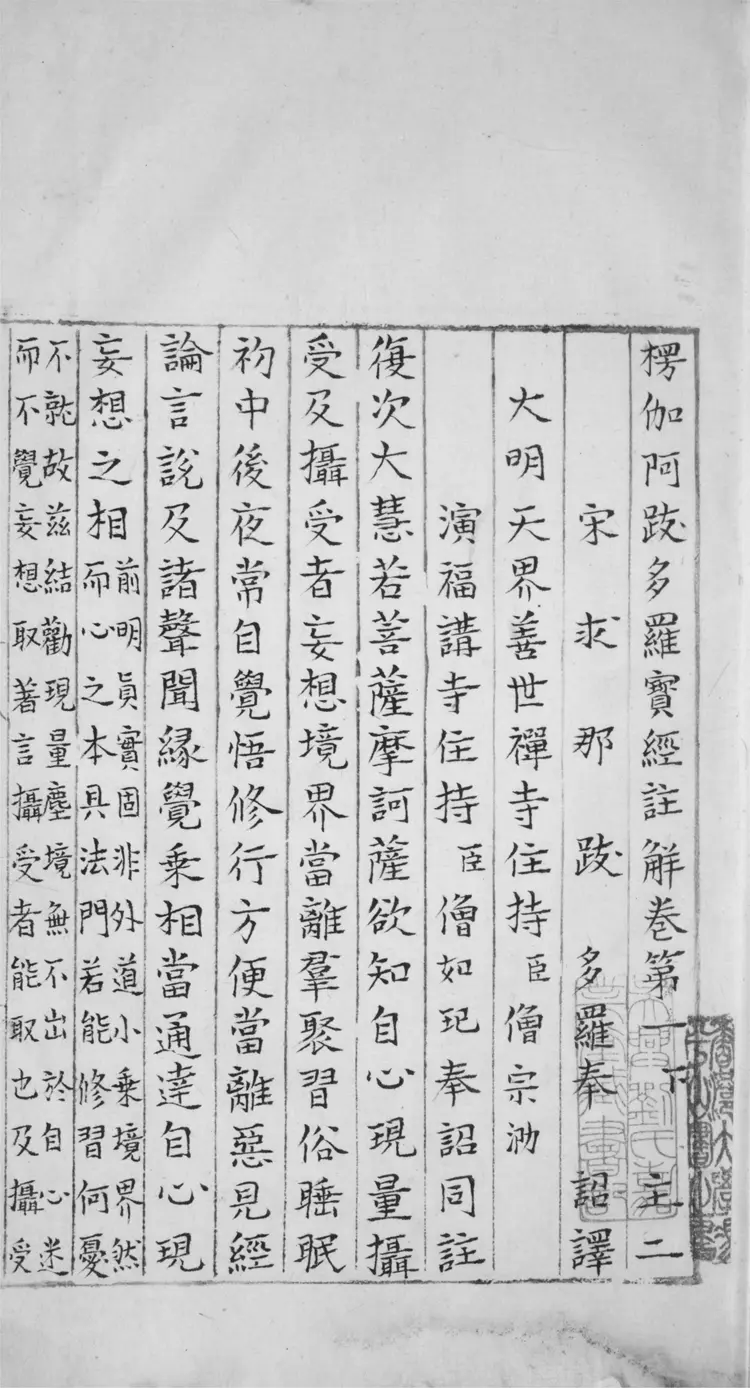 楞伽阿跋多羅寳經註解卷第一下 主二
宋求那跋多羅奉 詔譯
大明天界善世禪寺住持臣僧宗泐
演福講寺住持臣僧如玘奉詔同註
復次大慧若菩薩摩訶薩欲知自心現量攝
受及攝受者妄想境界當離羣聚習俗睡眠
初中後夜常自覺悟修行方便當離惡見經
論言說及諸聲聞緣覺乘相當通達自心現
妄想之相前明眞實固非外道小乗境界然
而心之本具法門若能修習何憂
不就故兹結勸現量塵境無不出於自心迷
而不覺妄想取著言攝受者能取也及攝受